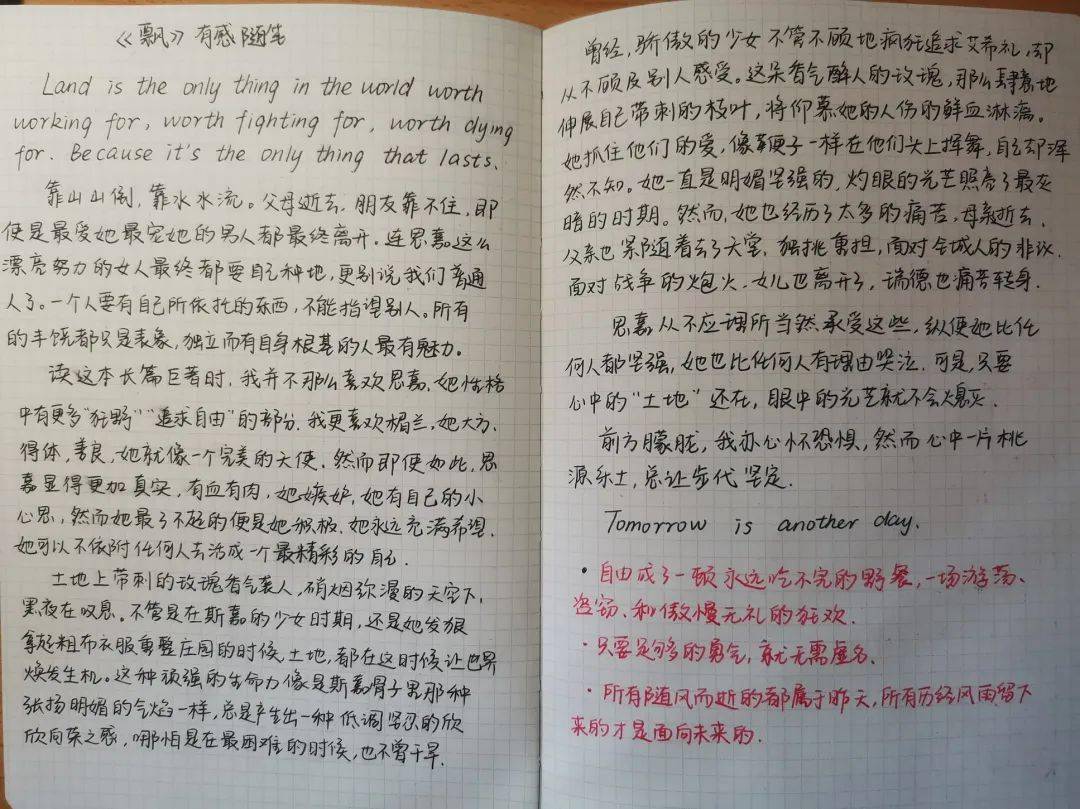 《飘》有感随笔
Land is the only thing in the world worth
working for, worth fighting for, worth dying
for. Because it's the only thing that lasts.
靠山山倒，靠水水流。父母逝去，朋友靠不住，即
使是最爱她最宠她的男人都最终离开。连思嘉这么
漂亮努力的女人最终都要自己种地，更别说我们普通
人了。一个人要有自己所依托的东西，不能指望别人。所有
的丰饶都只是表象，独立而有自身根基的人最有魅力。
读这本长篇巨著时，我并不那么喜欢思嘉，她性格
中有更多“狂野”“追求自由”的部分，我更喜欢楣兰，她大方、
得体，善良，她就像一个完美的天使。然而即便如此，思
嘉显得更加真实，有血有肉，她嫉妒，她有自己的小
心思，然而她最了不起的便是她积极，她永远充满希望，
她可以不依附任何人去活成一个最精彩的自己。
土地上带刺的玫瑰香气袭人，硝烟弥漫的天空下，
黑夜在叹息。不管是在斯嘉的少女时期，还是她发狠
拿起粗布衣服重整庄园的时候，土地，都在这时候让世界
焕发生机。这种顽强的生命力像是斯嘉骨子里那种
张扬明媚的气焰一样，总是产生出一种低调坚忍的欣
欣向荣之感，哪怕是在最困难的时候，也不曾干旱。
曾经，骄傲的少女不管不顾地疯狂追求艾希礼，却
从不顾及别人感受。这朵香气醉人的玫瑰，那么肆意地
伸展自己带刺的枝叶，将仰慕她的人伤的鲜血淋漓。
她抓住他们的爱，像鞭子一样在他们头上挥舞，自己却浑
然不知。她一直是明媚坚强的，灼眼的光芒照亮了最灰
暗的时期。然而，她也经历了太多的痛苦，母亲逝去，
父亲也紧随着去了天堂，独挑重担，面对全城人的非议，
面对战争的炮火，女儿也离开了，瑞德也痛苦转身。
思嘉从不应理所当然承受这些，纵使她比任
何人都坚强，她也比任何人有理由哭泣。可是，只要
心中的“土地”还在，眼中的光芒就不会熄灭。
前方朦胧，我亦心怀恐惧，然而心中一片桃
源乐土，总让步伐坚定。
Tomorrow is another day.
·自由成了一顿永远吃不完的野餐，一场游荡、
盗窃、和傲慢无礼的狂欢。
·只要足够的勇气，就无需虚名。
·所有随风而逝的都属于昨天，所有历经风雨留下
来的才是面向未来的。